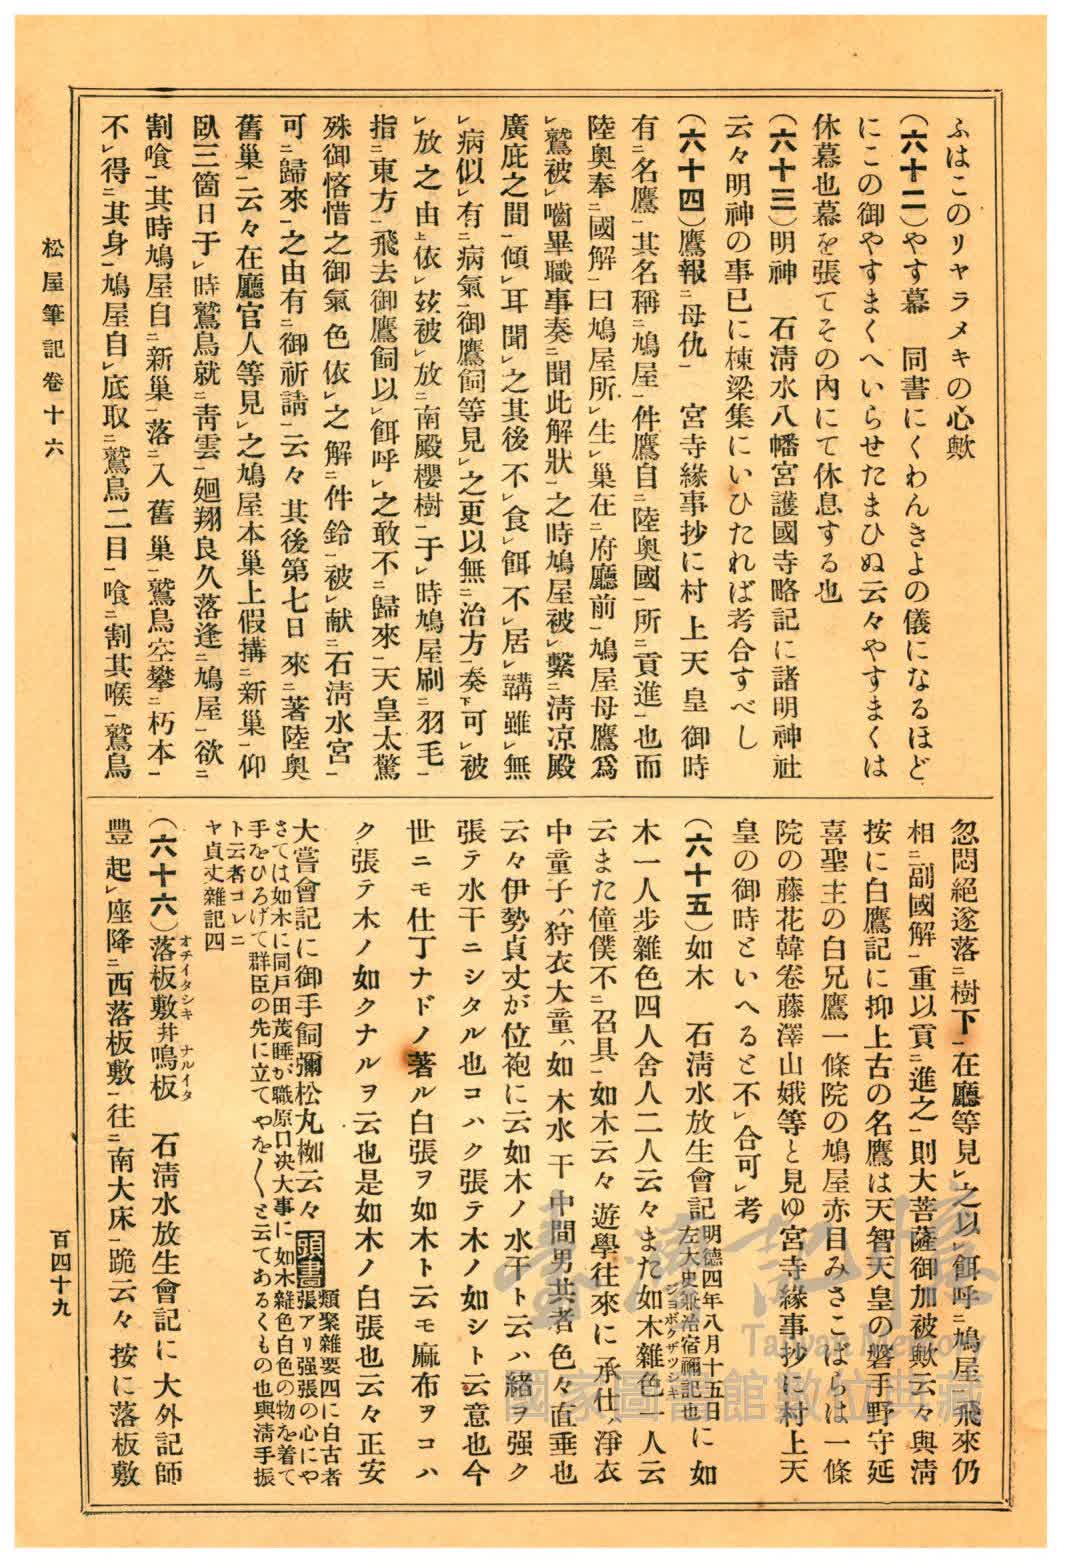 ふはこのリャラメキの心歟
(六十二)やす幕　同書にくわんきよの儀になるほど
にこの御やすまくへいらせたまひぬ云々やすまくは
休幕也幕を張てその內にて休息する也
(六十三)明神　石淸水八幡宮護國寺略記に諸明神社
云々明神の事已に棟梁集にいひたれば考合すべし
(六十四)鷹報㆓母仇㆒　宮寺緣事抄に村上天皇御時
有㆓名鷹㆒其名稱㆓鳩屋㆒件鷹自㆓陸奧國㆒所㆓貢進㆒也而
陸奧奉㆓國解㆒曰鳩屋所㆑生㆑巢在㆓府廳前㆒鳩屋母鷹爲
㆑鷲被㆑嚙畢職事奏㆓聞此解狀㆒之時鳩屋被㆑繫㆓淸凉殿
廣庇之間㆒傾㆑耳聞㆑之其後不㆑食㆑餌不㆑居㆑韝雖㆑無
㆑病似㆑有㆓病氣㆒御鷹飼等見㆑之更以無㆓治方㆒奏㆘可㆑被
㆑放之由㆖依㆑玆被㆑放㆓南殿櫻樹㆒于㆑時鳩屋刷㆓羽毛㆒
指㆓東方㆒飛去御鷹飼以㆑餌呼㆑之敢不㆓歸來㆒天皇太驚
殊御悋惜之御氣色依㆑之解㆓件鈴㆒被㆑献㆓石淸水宮㆒
可㆓歸來㆒之由有㆓御祈請㆒云々其後第七日來㆓著陸奧
舊巢㆒云々在廳官人等見㆑之鳩屋本巢上假搆㆓新巢㆒仰
臥三箇日于㆑時鷲鳥就㆓靑雲㆒廻翔良久落逢㆓鳩屋㆒欲㆓
割喰㆒其時鳩屋自㆓新巢㆒落㆓入舊巢㆒鷲鳥空攀㆓朽本㆒
不㆑得㆓其身㆒鳩屋自㆑底取㆓鷲鳥二目㆒喰㆓割其喉㆒鷲鳥
忽悶絕遂落㆓樹下㆒在廳等見㆑之以㆑餌呼㆓鳩屋㆒飛來仍
相㆓副國解㆒重以貢㆓進之㆒則大菩薩御加被歟云々與淸
按に白鷹記に抑上古の名鷹は天智天皇の磐手野守延
喜聖主の白兄鷹一條院の鳩屋赤目みさこばらは一條
院の藤花韓卷藤澤山娥等と見ゆ宮寺緣事抄に村上天
皇の御時といへると不㆑合可㆑考
(六十五)如木　石淸水放生會記明德四年八月十五日左大史兼治宿禰記也に如
木一人步雜色四人舍人二人云々また如木雜色ジョボクザツシキ一人云
云また僮僕不㆓召具㆒如木云々遊學往來に承仕ハ淨衣
中童子ハ狩衣大童ハ如木水干中間男共者色々直垂也
云々伊勢貞丈が位袍に云如木ノ水干ト云ハ緖ヲ强ク
張テ水干ニシタル也コハク張テ木ノ如シト云意也今
世ニモ仕丁ナドノ著ル白張ヲ如木ト云モ麻布ヲコハ
ク張テ木ノ如クナルヲ云也是如木ノ白張也云々正安
大嘗會記に御手飼彌松丸枷云々頭書類聚雜要四に白古者張アリ强張の心にや
さては如木に同戶田茂睡が職原口决大事に如木雜色白色の物を着て
手をひろげて群臣の先に立てやを〱と云てあるくもの也與淸手振
ト云者コレニ
ヤ貞丈雜記四
(六十六)落板敷オチイタシキ井鳴板ナルイタ　石淸水放生會記に大外記師
豐起㆑座降㆓西落板敷㆒往㆓南大床㆒跪云々按に落板敷
松屋筆記卷十六
百四十九
臺灣記憶
Taiwan Memory
國家圖書館數位典藏